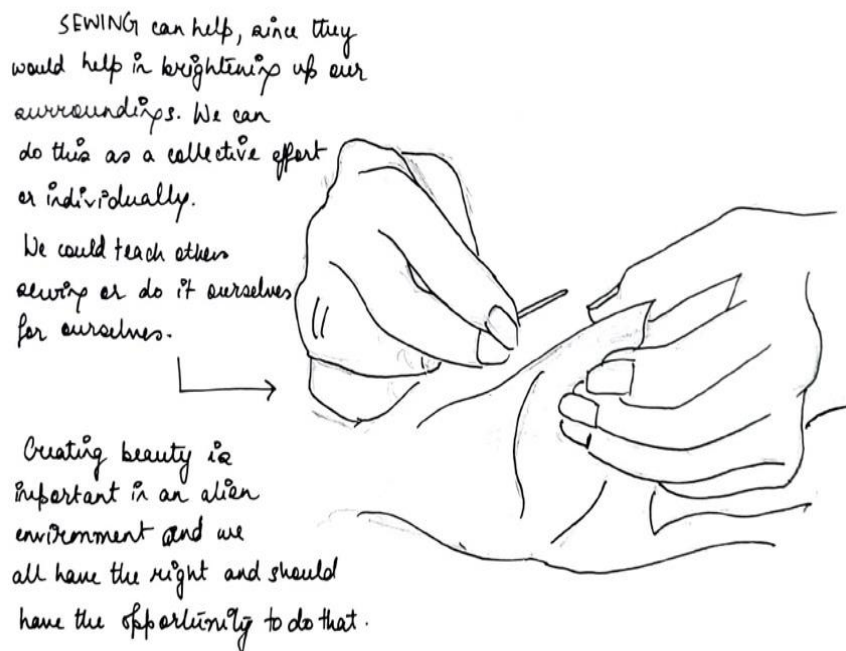 SEWING can help, since they
would help in brightening up our
surroundings. We can
do this as a collective effort
or individually.
We could teach others
sewing or do it ourselves
for ourselves.
Creating beauty is
important in an alien
environment and we
all have the right and should
have the opportunity to do that.